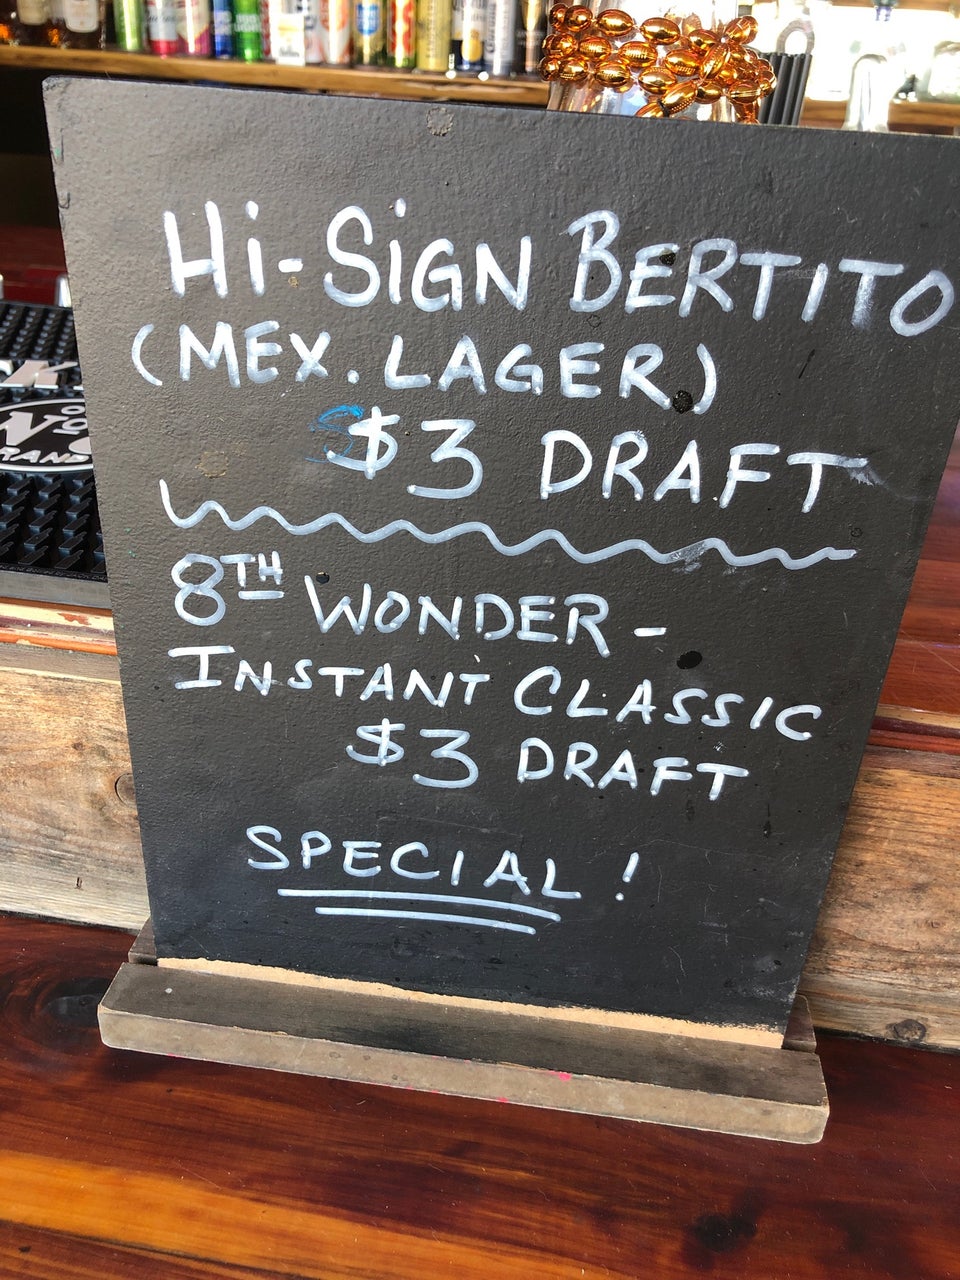 Hi-SiGN BERTITO
(MEX. LAGER)
$3 DRAFT
8TH WONDER -
INSTANT CLASSIC
$3 DRAFT
SPECIAL!